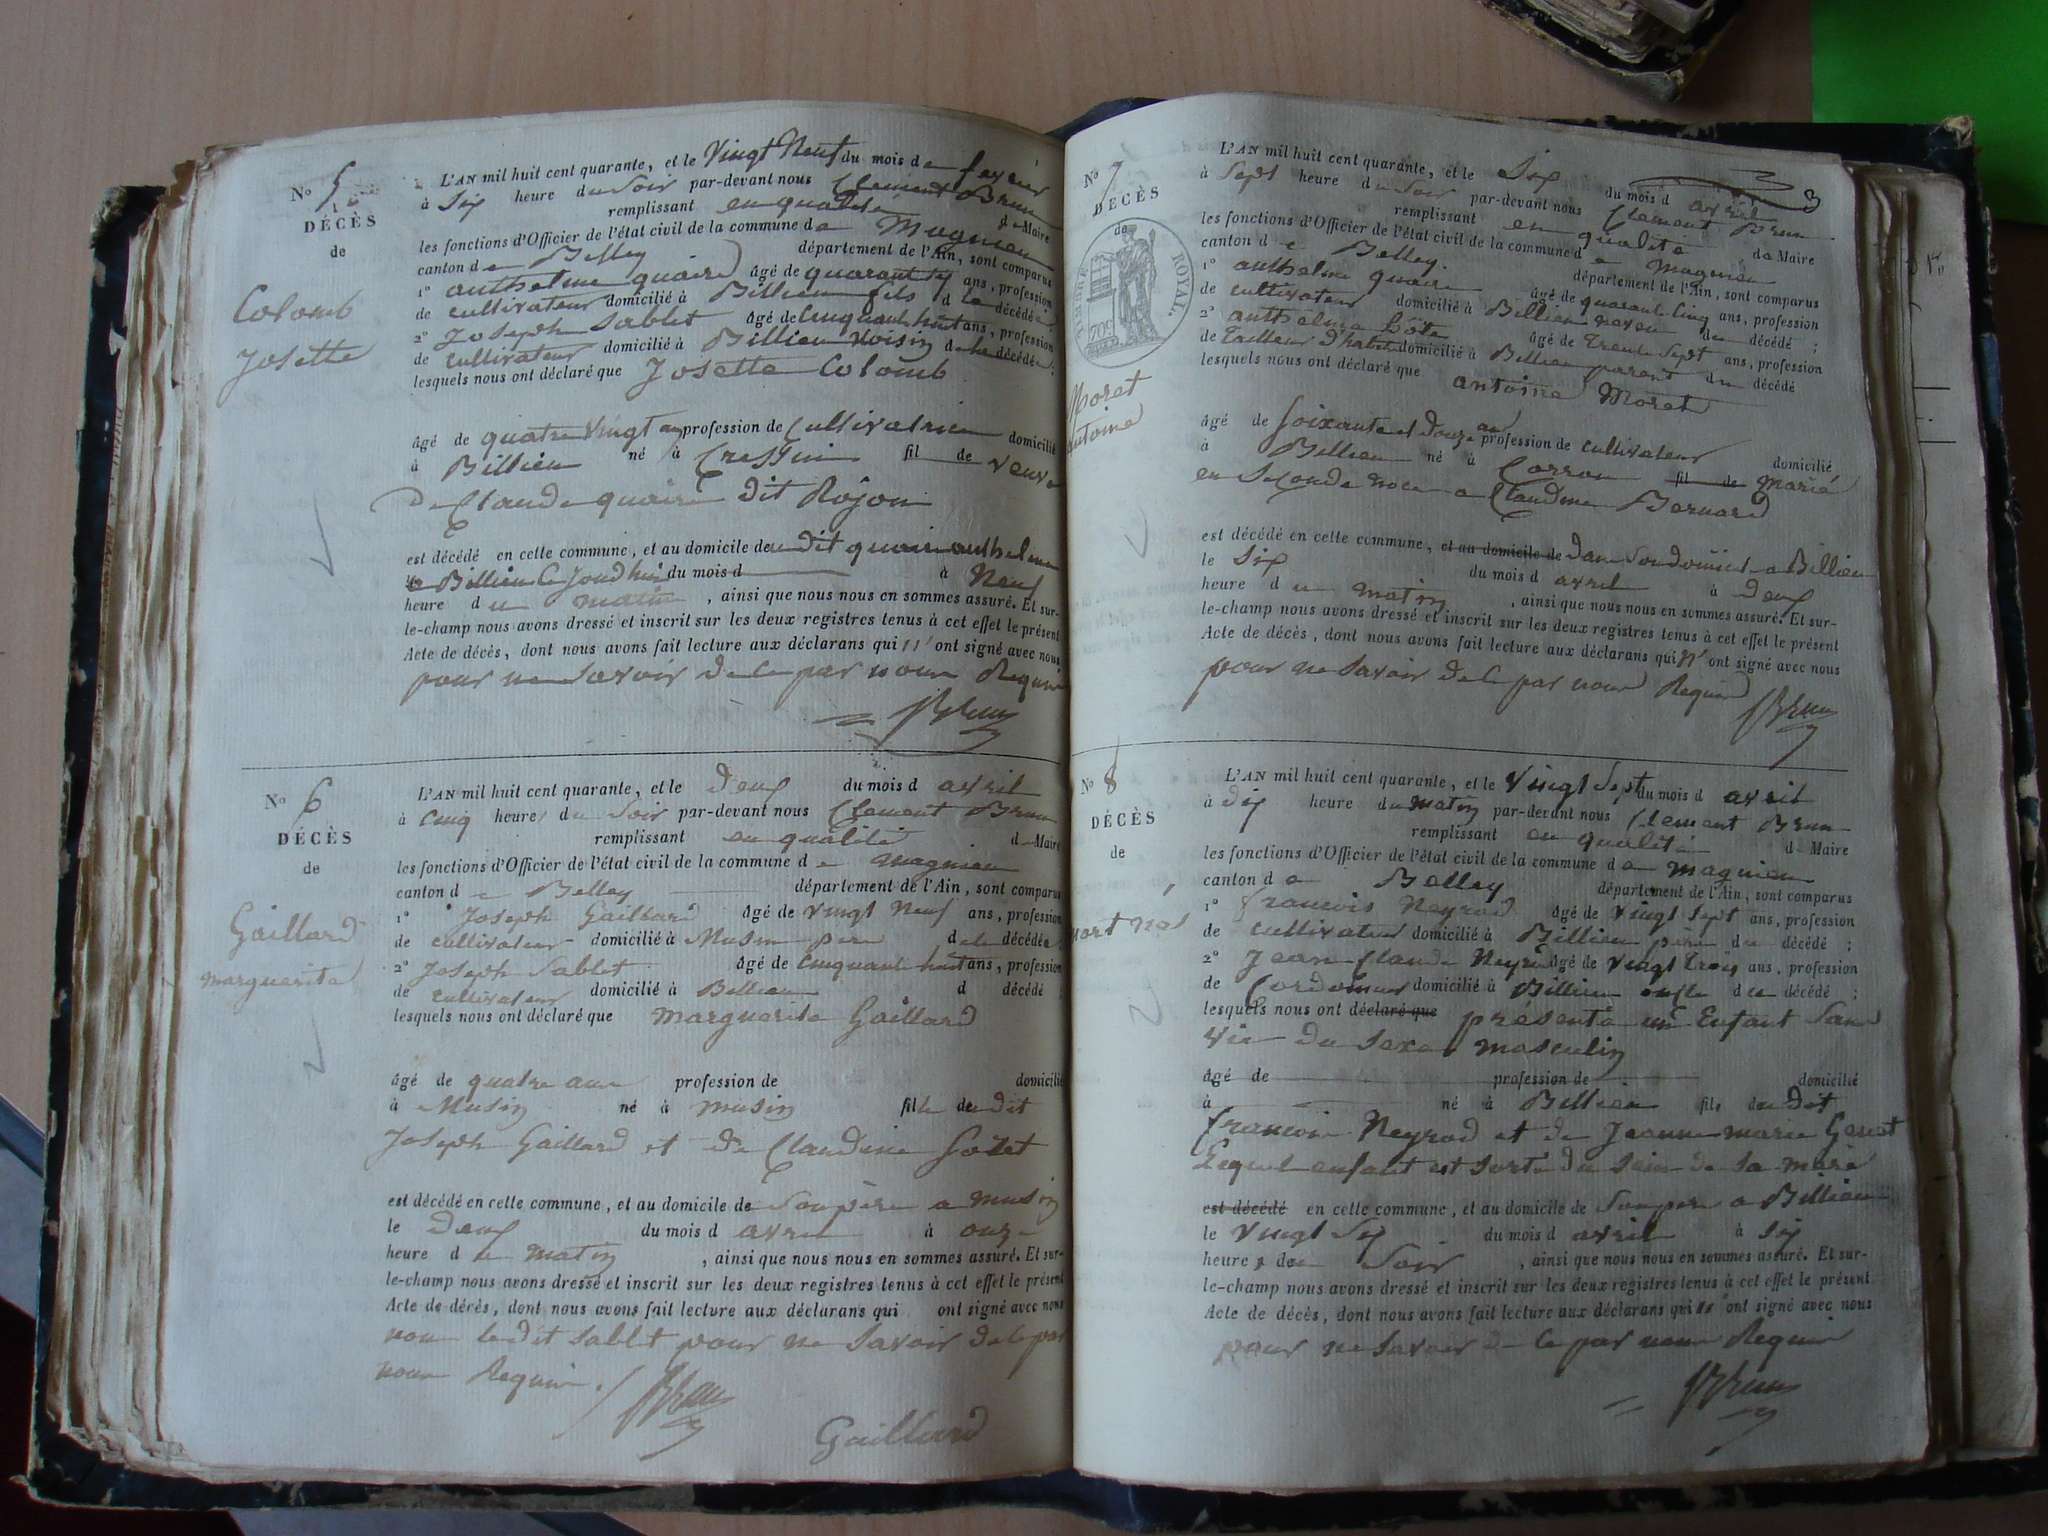 No 5
DÉCÈS
de
Colomb
Josette
L'AN mil huit cent quarante, et le Vingt Neuf du mois de fevrier
à Six heure du Soir par-devant nous Clement Brun
remplissant en qualité de Maire
les fonctions d'Officier de l'état civil de la commune de Magnieu
canton de Belley département de l'Ain, sont comparus
1° anthelme quaire âgé de quarant ans, profession
de cultivateur domicilié à Billieu fils de la décédée
2° Joseph Sablet âgé de cinquant huit ans, profession
de cultivateur domicilié à Billieu voisin de la décédée ;
lesquels nous ont déclaré que Josette Colomb
âgé de quatre Vingt ans profession de Cultivatrice domicilié
à Billieu né à Cressin fil de veuve
De Claude quaire dit Rojon
est décédé en cette commune, et au domicile du dit quaire anthelme
a Billieu ce jourdhui du mois d à Neuf
heure du matin, ainsi que nous nous en sommes assuré. Et sur-
le-champ nous avons dressé et inscrit sur les deux registres tenus à cet effet le présent
Acte de décès, dont nous avons fait lecture aux déclarans qui n'ont signé avec nous
pour ne Savoir de ce par nous Requis
Brun
No 6
DÉCÈS
de
Gaillard
marguerite
L'AN mil huit cent quarante, et le deux du mois d avril
à cinq heures du Soir par-devant nous Clement Brun
remplissant en qualité de Maire
les fonctions d'Officier de l'état civil de la commune de magnieu
canton de Belley département de l'Ain, sont comparus
1° Joseph Gaillard âgé de vingt Neuf ans, profession
de cultivateur domicilié à Musin père de la décédée ;
2° Joseph Sablet âgé de cinquant huit ans, profession
de cultivateur domicilié à Billieu d décédé ;
lesquels nous ont déclaré que marguerite Gaillard
âgé de quatre ans profession de domicilié
à Musin né à musin fille du dit
Joseph Gaillard et de Claudine
est décédé en cette commune, et au domicile de Son père a musin
le Deux du mois d avril à onze
heure du matin, ainsi que nous nous en sommes assuré. Et sur-
le-champ nous avons dressé et inscrit sur les deux registres tenus à cet effet le présent
Acte de décès, dont nous avons fait lecture aux déclarans qui ont signé avec nous
non ledit Sablet pour ne Savoir de ce par
nous Requis.
Brun
Gaillard
3
No 7
DÉCÈS
de
TIMBRE ROYAL
70c
Moret
antoine
L'AN mil huit cent quarante, et le Six du mois d avril
à Sept heure du Soir par-devant nous Clement Brun
remplissant en qualité de Maire
les fonctions d'Officier de l'état civil de la commune de Magnieu
canton de Belley département de l'Ain, sont comparus
1° anthelme quaire âgé de quarant Cinq ans, profession
de cultivateur domicilié à Billieu neveu du décédé ;
2° anthelme âgé de trente Sept ans, profession
de Tailleur D'habit domicilié à Billieu parent du décédé
lesquels nous ont déclaré que antoine Moret
âgé de Soixante et Douze ans profession de cultivateur domicilié
à Billieu né à Corron fil de marié
en Seconde noce a Claudine Bernard
est décédé en cette commune, et au domicile de dans Son domicile a Billieu
le Six du mois d avril à deux
heure du matin, ainsi que nous nous en sommes assuré. Et sur-
le-champ nous avons dressé et inscrit sur les deux registres tenus à cet effet le présent
Acte de décès, dont nous avons fait lecture aux déclarans qui n'ont signé avec nous
pour ne Savoir de ce par nous Requis
Brun
No 8
DÉCÈS
de
mort né
L'AN mil huit cent quarante, et le Vingt Sept du mois d avril
à dix heure du matin par-devant nous Clement Brun
remplissant en qualité de Maire
les fonctions d'Officier de l'état civil de la commune de magnieu
canton de Belley département de l'Ain, sont comparus
1° francois Neyrod âgé de vingt Sept ans, profession
de cultivateur domicilié à Billieu père du décédé ;
2° Jean Claude Neyrod âgé de vingt trois ans, profession
de Cordonnier domicilié à Billieu oncle du décédé ;
lesquels nous ont déclaré que présenté un Enfant Sans
vie du Sexe masculin
âgé de profession de domicilié
à né à Billieu fils du dit
francois Neyrod et de Jeanne marie
Lequel enfant est Sorti du Sein de Sa mère
est décédé en cette commune, et au domicile de Son père a Billieu
le Vingt Six du mois d avril à Six
heures du Soir, ainsi que nous nous en sommes assuré. Et sur-
le-champ nous avons dressé et inscrit sur les deux registres tenus à cet effet le présent
Acte de décès, dont nous avons fait lecture aux déclarans qui n'ont signé avec nous
pour ne Savoir de ce par nous Requis
Brun